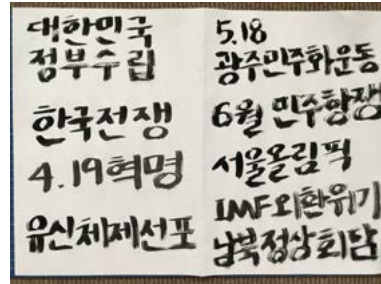 대한민국
정부수립
한국전쟁
4.19혁명
유신체제선포
5.18
광주민주화운동
6월 민주항쟁
서울올림픽
IMF외환위기
남북정상회담